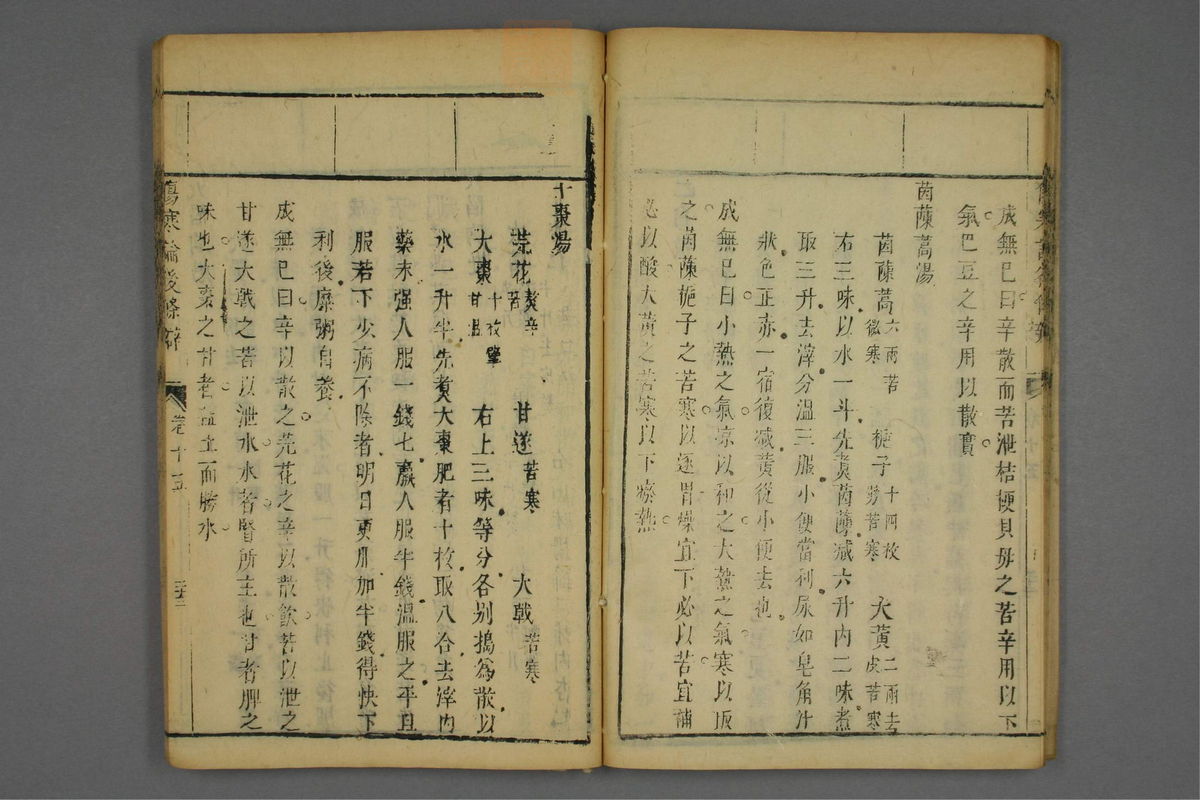 成無巳曰辛散而苦泄桔梗貝母之苦辛用以下
氣巴豆之辛用以散實
茵蔯蒿湯
茵蔯蒿六兩苦微寒 梔子十四枚劈苦寒 大黃二兩去皮苦寒
右三味以水一斗先煑茵蔯減六升內二味煮
取三升去滓分溫三服小便當利尿如皂角汁
狀色正赤一宿復減黃從小便去也
成無巳曰小熱之氣凉以和之大熱之氣寒以取
之茵蔯梔子之苦寒以逐胃燥宜下必以苦宜補
必以酸大黃之苦寒以下瘀熱
十棗湯
芫花熬辛苦 甘遂苦寒 大戟苦寒
大棗十枚擘甘溫 右上三味等分各別搗為散以
水一升半先煑大棗肥者十枚取八合去滓內
藥末强人服一錢七羸人服半錢溫服之平旦
服若下少病不除者明日更服加半錢得快下
利後糜粥自養
成無巳曰辛以散之芫花之辛以散飲苦以泄之
甘遂大戟之苦以泄水水者腎所主也甘者脾之
味也大棗之甘者益土而勝水
傷寒論後條辯
卷十五